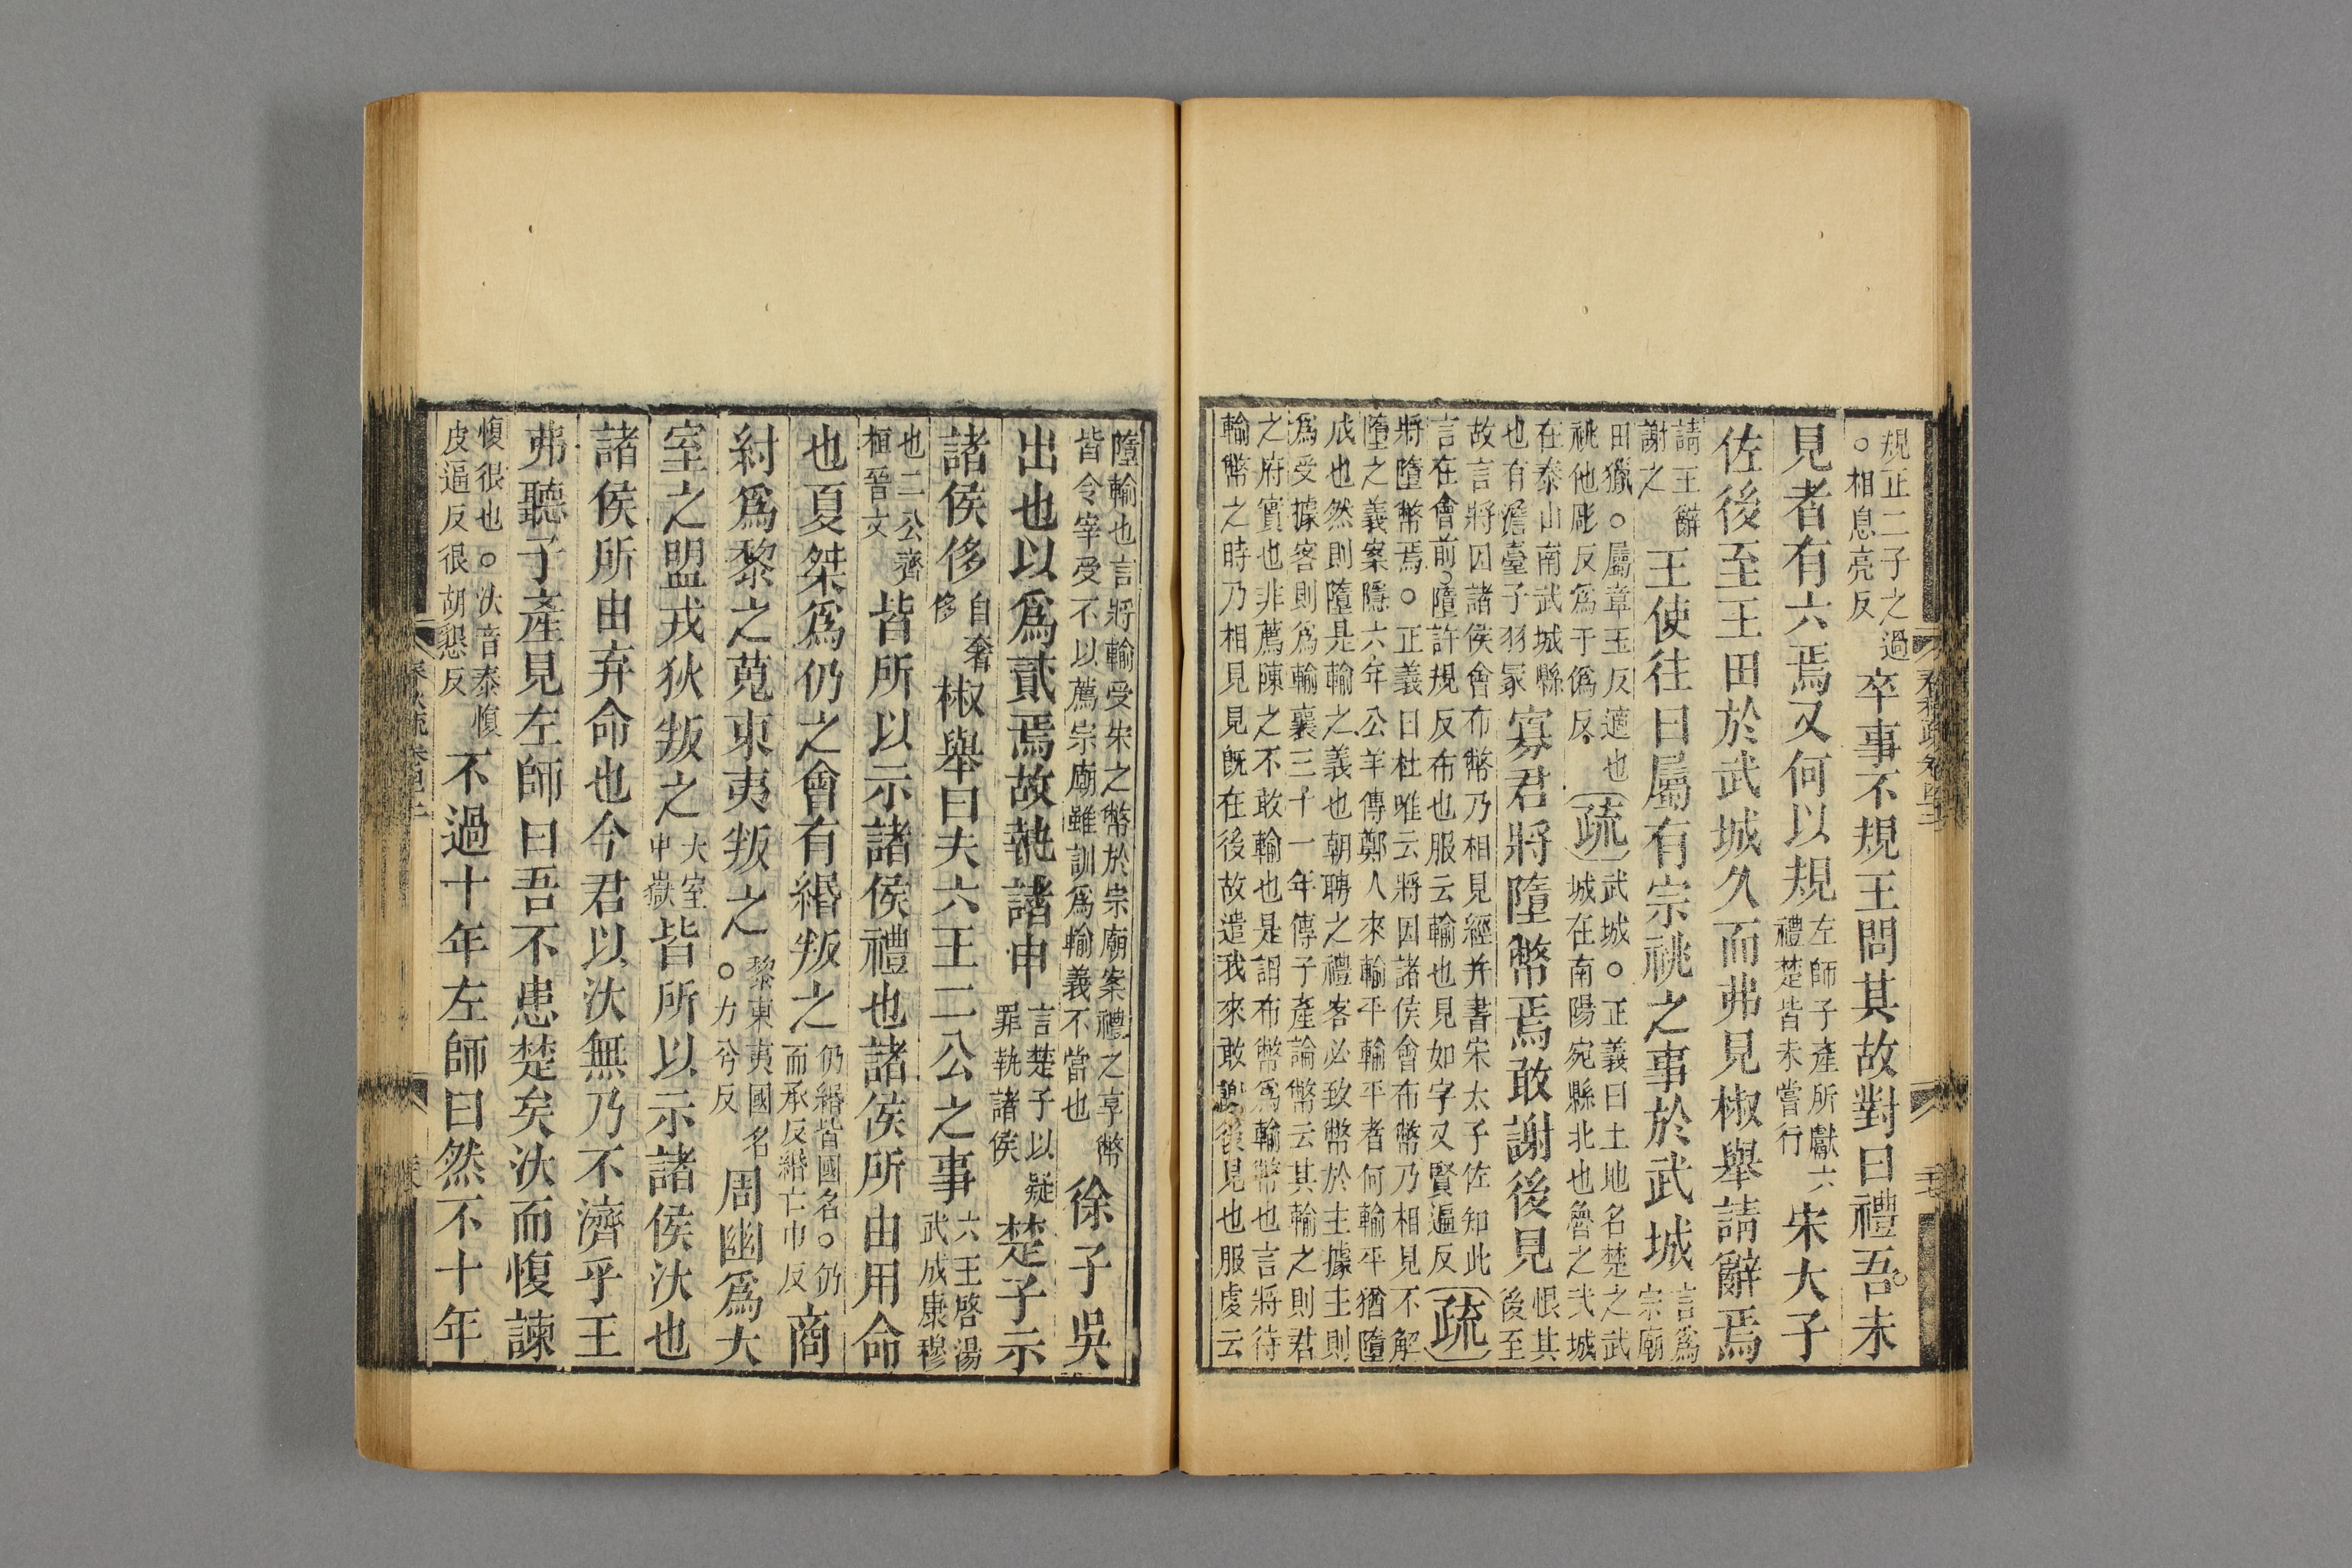 規正二子之過
○相息亮反
卒事不規王問其故對曰禮吾未
見者有六焉又何以規
左師子產所獻六
禮楚皆未嘗行
宋大子
佐後至王田於武城久而弗見椒舉請辭焉
請王辭
謝之
王使往曰屬有宗祧之事於武城
言爲
宗廟
田獵○屬章玉反適也
祧他彫反爲于僞反
疏
武城○正義曰土地名楚之武
城在南陽宛縣北也魯之武城
在泰山南武城縣
也有澹臺子羽冢
寡君將墮幣焉敢謝後見
恨其
後至
故言將因諸侯會布幣乃相見經并書宋太子佐知此
言在會前○墮許規反布也服云輸也見如字又賢遍反
疏
將墮幣焉○正義曰杜唯云將因諸侯會布幣乃相見不解
墮之義案隱六年公羊傳鄭人來輸平輸平者何輸平猶墮
成也然則墮是輸之義也朝聘之禮客必致幣於主據主則
爲受據客則爲輸襄三十一年傳子產論幣云其輸之則君
之府實也非薦陳之不敢輸也是謂布幣爲輸幣也言將待
輸幣之時乃相見見既在後故遣我來敢謝後見也服虔云
墮輸也言將輸受宋之幣於宗廟案禮之享幣
皆令宰受不以薦宗廟雖訓爲輸義不當也
徐子吳
出也以爲貳焉故執諸申
言楚子以疑
罪執諸侯
楚子示
諸侯侈
自奢
侈
椒舉曰夫六王二公之事
六王啓湯
武成康穆
也二公齊
桓晉文
皆所以示諸侯禮也諸侯所由用命
也夏桀爲仍之會有緡叛之
仍緡皆國名○仍
而承反緡亡巾反
商
紂爲黎之蒐東夷叛之
黎東夷國名
○力兮反
周幽爲大
室之盟戎狄叛之
大室
中嶽
皆所以示諸侯汏也
諸侯所由弃命也今君以汏無乃不濟乎王
弗聽子產見左師曰吾不患楚矣汏而愎諫
愎很也○汏音泰愎
皮逼反很胡懇反
不過十年左師曰然不十年